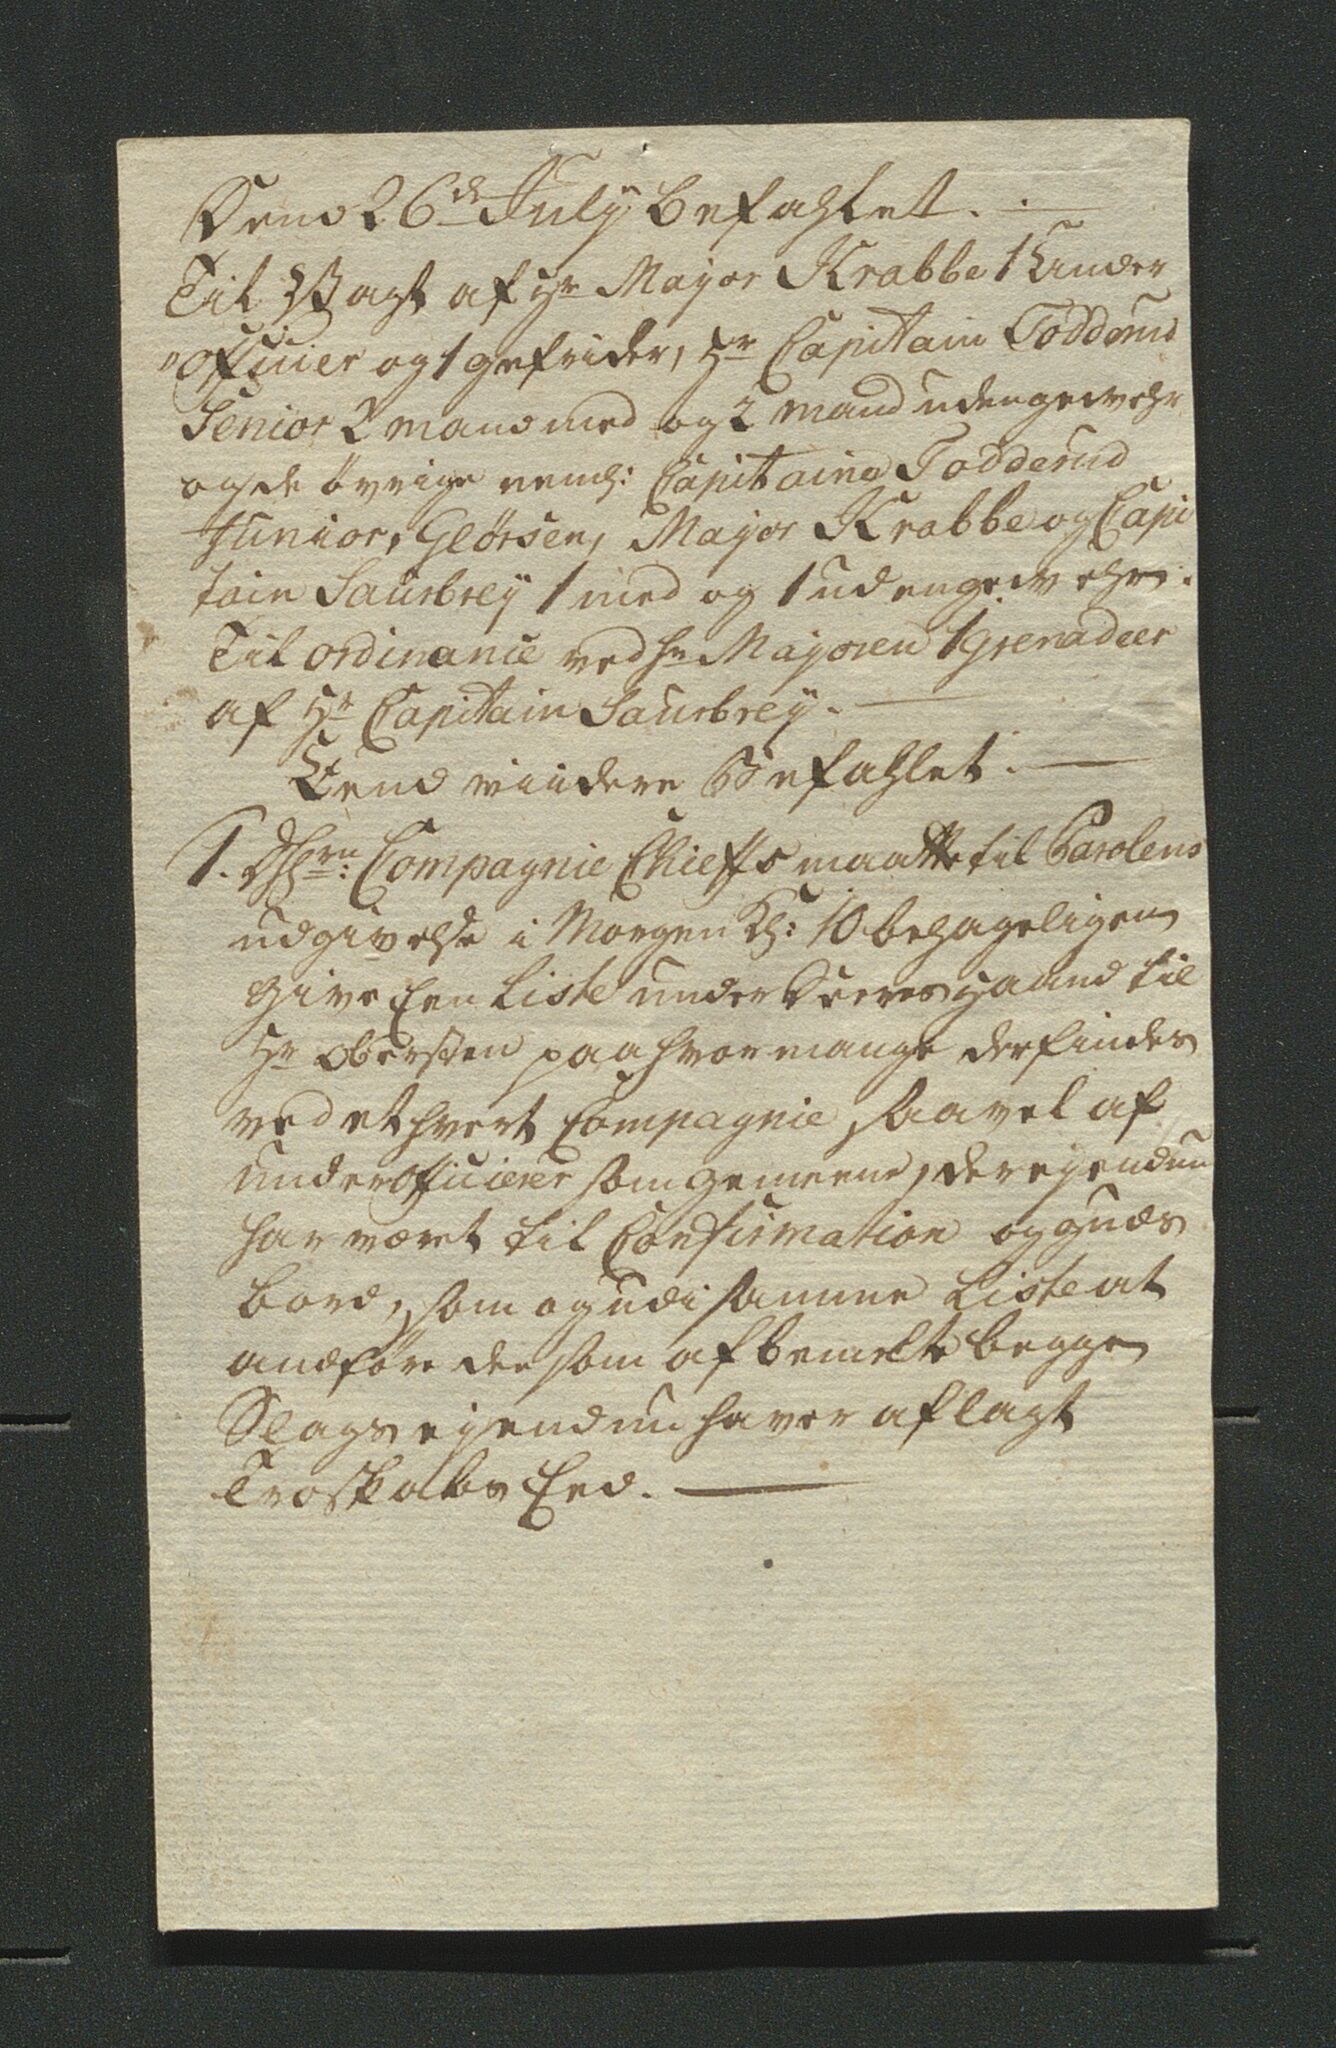 Dend 26de July Befahlet.
Til Wagt af Hr Mayor Krabbe 1 Under
officier og 1 gefrider, Hr Capitain Todderud
Senior 2 mand med og 2 mand uden gewehr
og de övrige neml: Capitaine Todderud
Junior, Glörsen, Mayor Krabbe og Capi
tain Saurbrey 1 med og 1 uden gewehr.
Til ordinance ved Hr Majoren 1 Grenadeer
af Hr Capitain Saurbrey.
End viidere Befahlet.
1. Compagnie Chieffs maatte til Parolens
udgivelse i Morgen Kl: 10 behageligen
give Een Liste under Deres Haand til
Hr Obersten paa hvor mange der findes
ved ethvert Compagnie, saavel af
underofficierer som gemeene, der ej endnu
har været til Confirmation og Guds
bord, som og udi samme Liste at
andføre dee som af bemelte begge
Slags ej endnu haver aflagt
Troskabs Eed.